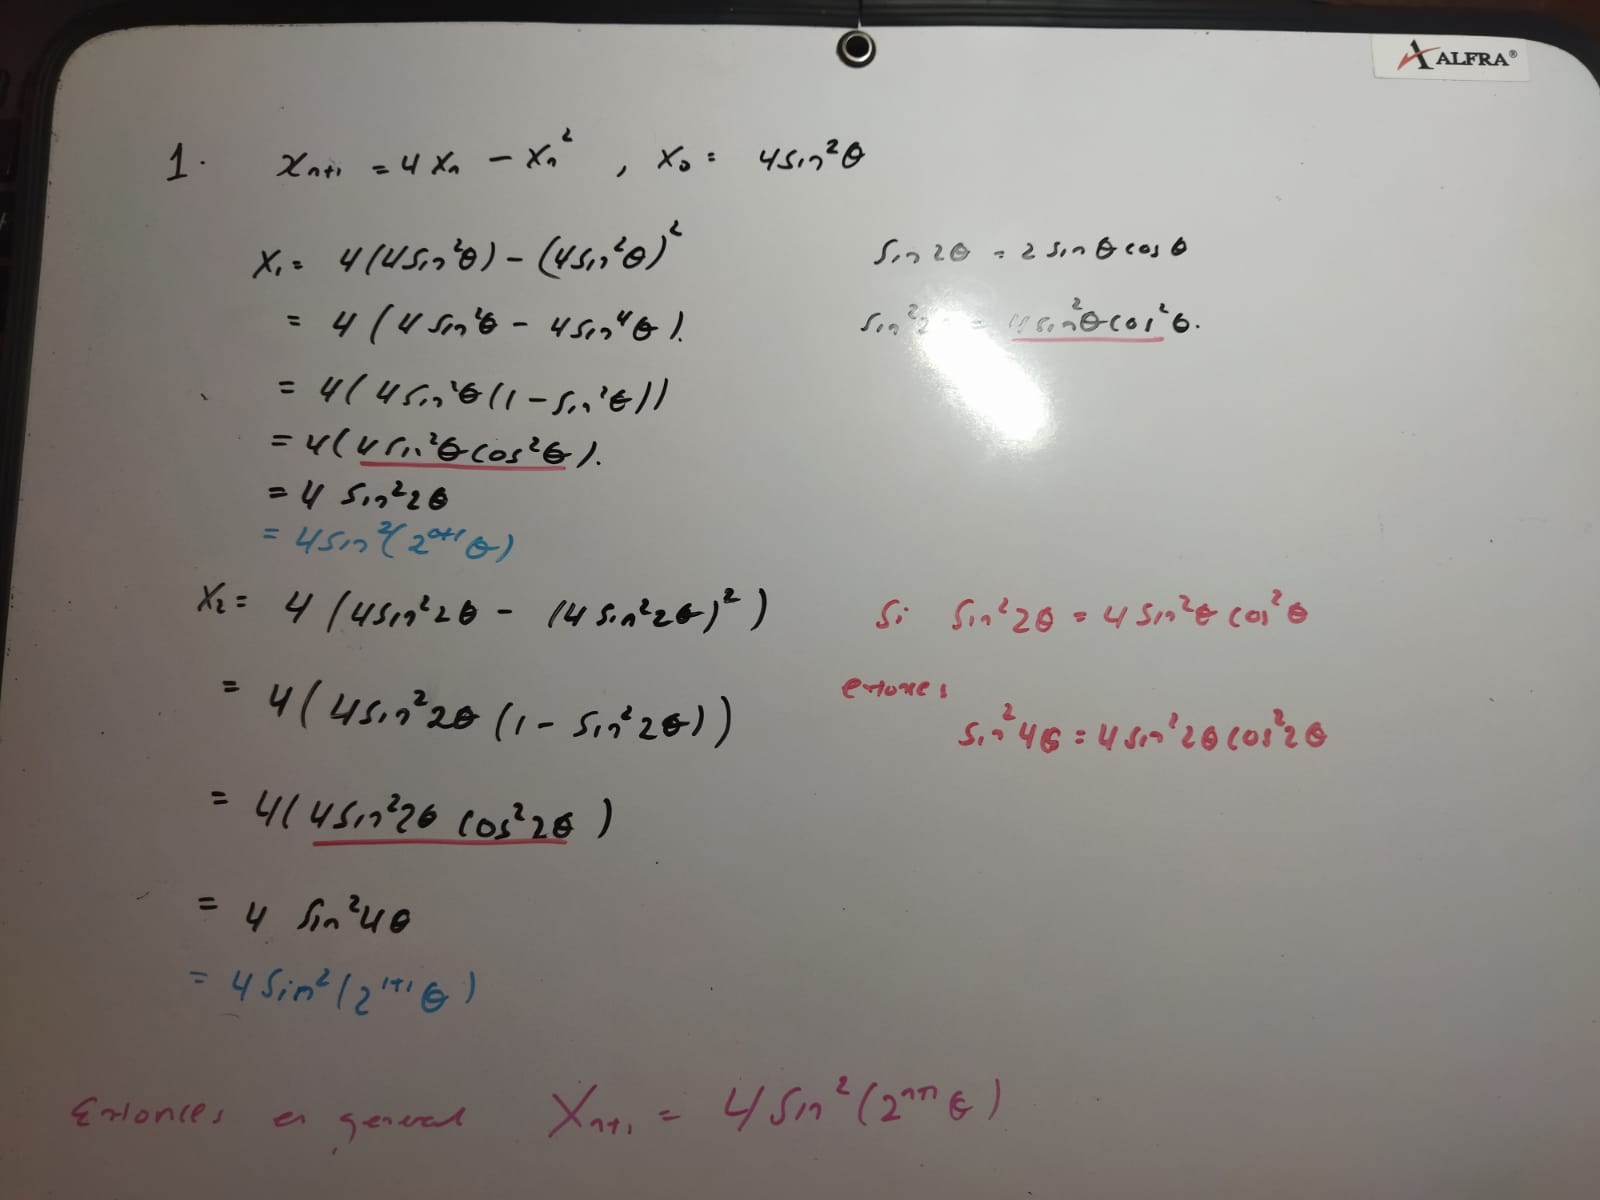 ALFRA®
1. x_{n+1} = 4x_n − x_n², x_0 = 4sin²θ
x_1 = 4(4sin²θ) − (4sin²θ)²
= 4(4sin²θ − 4sin⁴θ).
= 4(4sin²θ(1 − sin²θ))
= 4(4sin²θcos²θ).
= 4 sin²2θ
= 4sin²(2^{0+1}θ)
sin2θ = 2sinθcosθ
sin²2 = 4sin²θcos²θ.
x_2 = 4(4sin²2θ − (4sin²2θ)²)
= 4(4sin²2θ(1 − sin²2θ))
= 4(4sin²2θ cos²2θ)
= 4 sin²4θ
= 4Sin²(2^{1+1}θ)
Si sin²2θ = 4sin²θcos²θ
entonces
sin²4θ = 4sin²2θcos²2θ
Entonces en general X_{n+1} = 4Sin²(2^{n+1}θ)